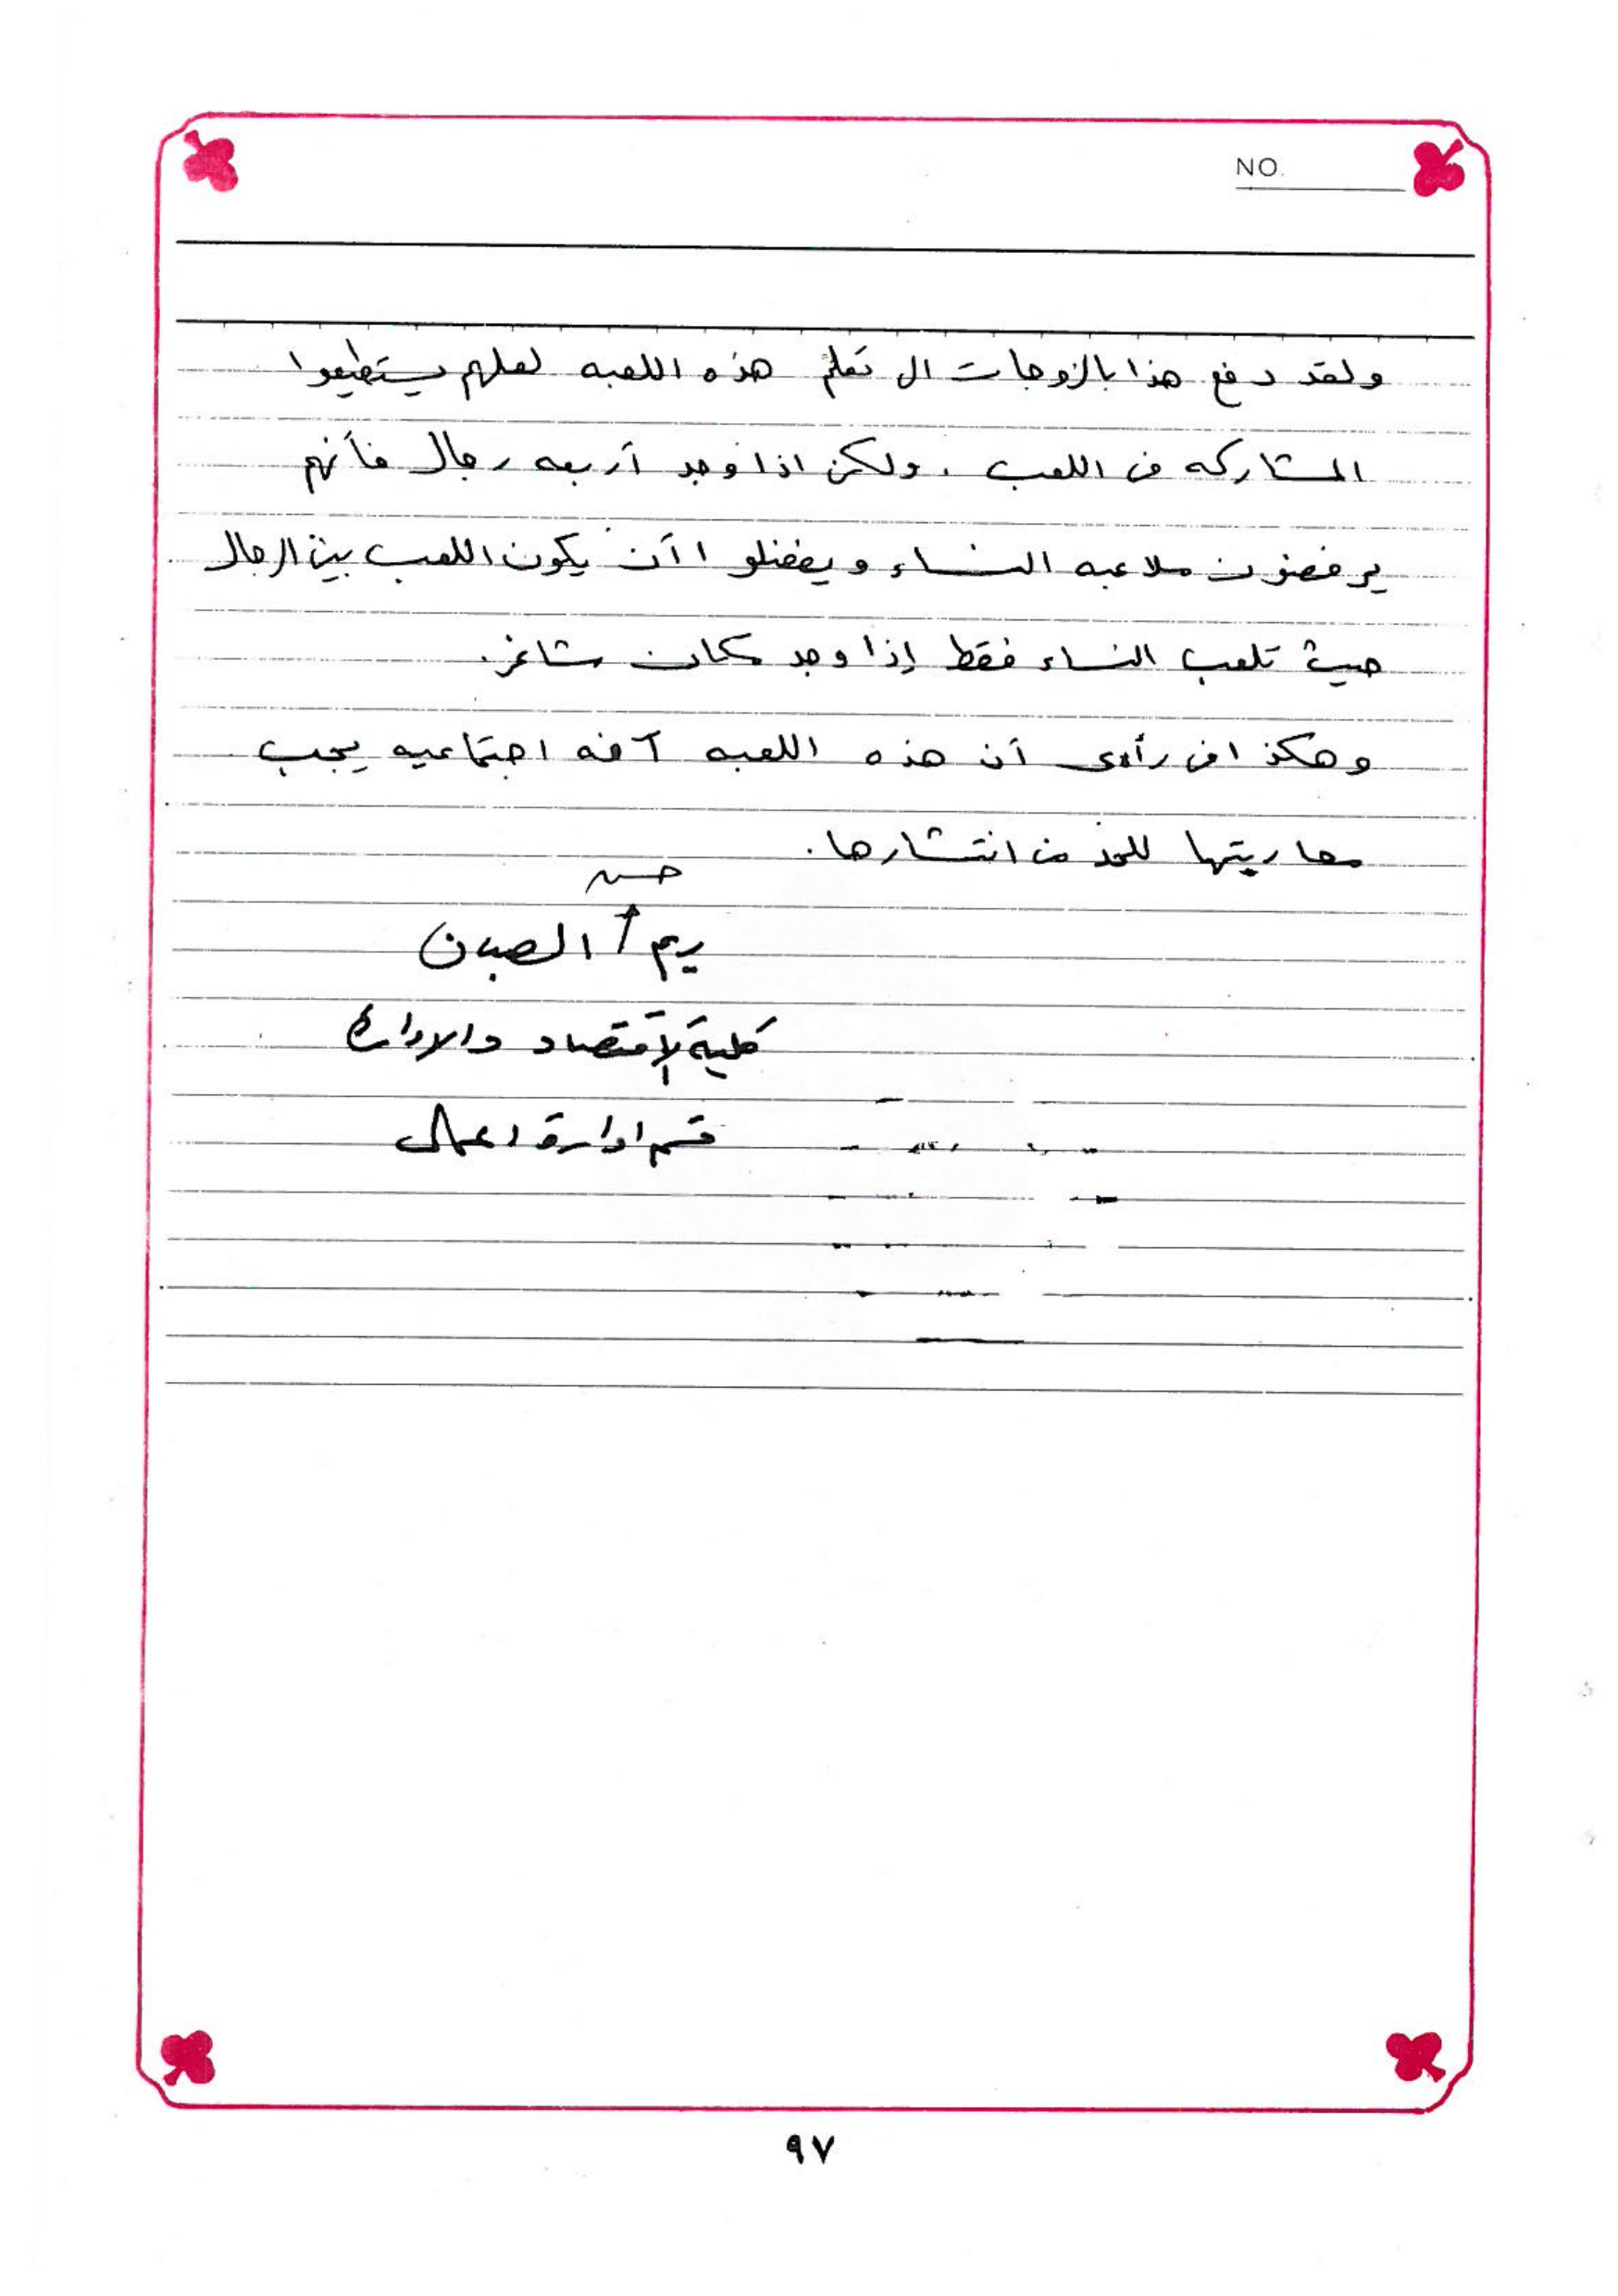 NO.
ولقد دفع هذا بالزوجات ال تعلم هذه اللعبه لعلهم يستطيعوا
المشاركه في اللعب . ولكن اذا وجد أربعه رجال فأنهم
يرفضون ملاعبه النساء ويفضلوا أن يكون اللعب بين الرجال
حيث تلعب النساء فقط إذا وجد مكان شاغر.
وهكذا في رأى أن هذه اللعبه آفه اجتماعيه يجب
محاربتها للحد من انتشارها .
حسن
ريم الصبان
كلية الإقتصاد والادارة
قسم ادارة اعمال
٩٧